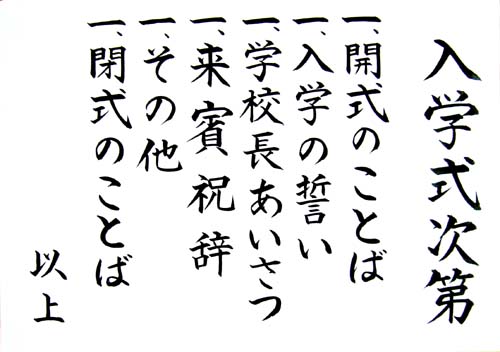 入学式次第
一、開式のことば
一、入学の誓い
一、学校長あいさつ
一、来賓祝辞
一、その他
一、閉式のことば
以上